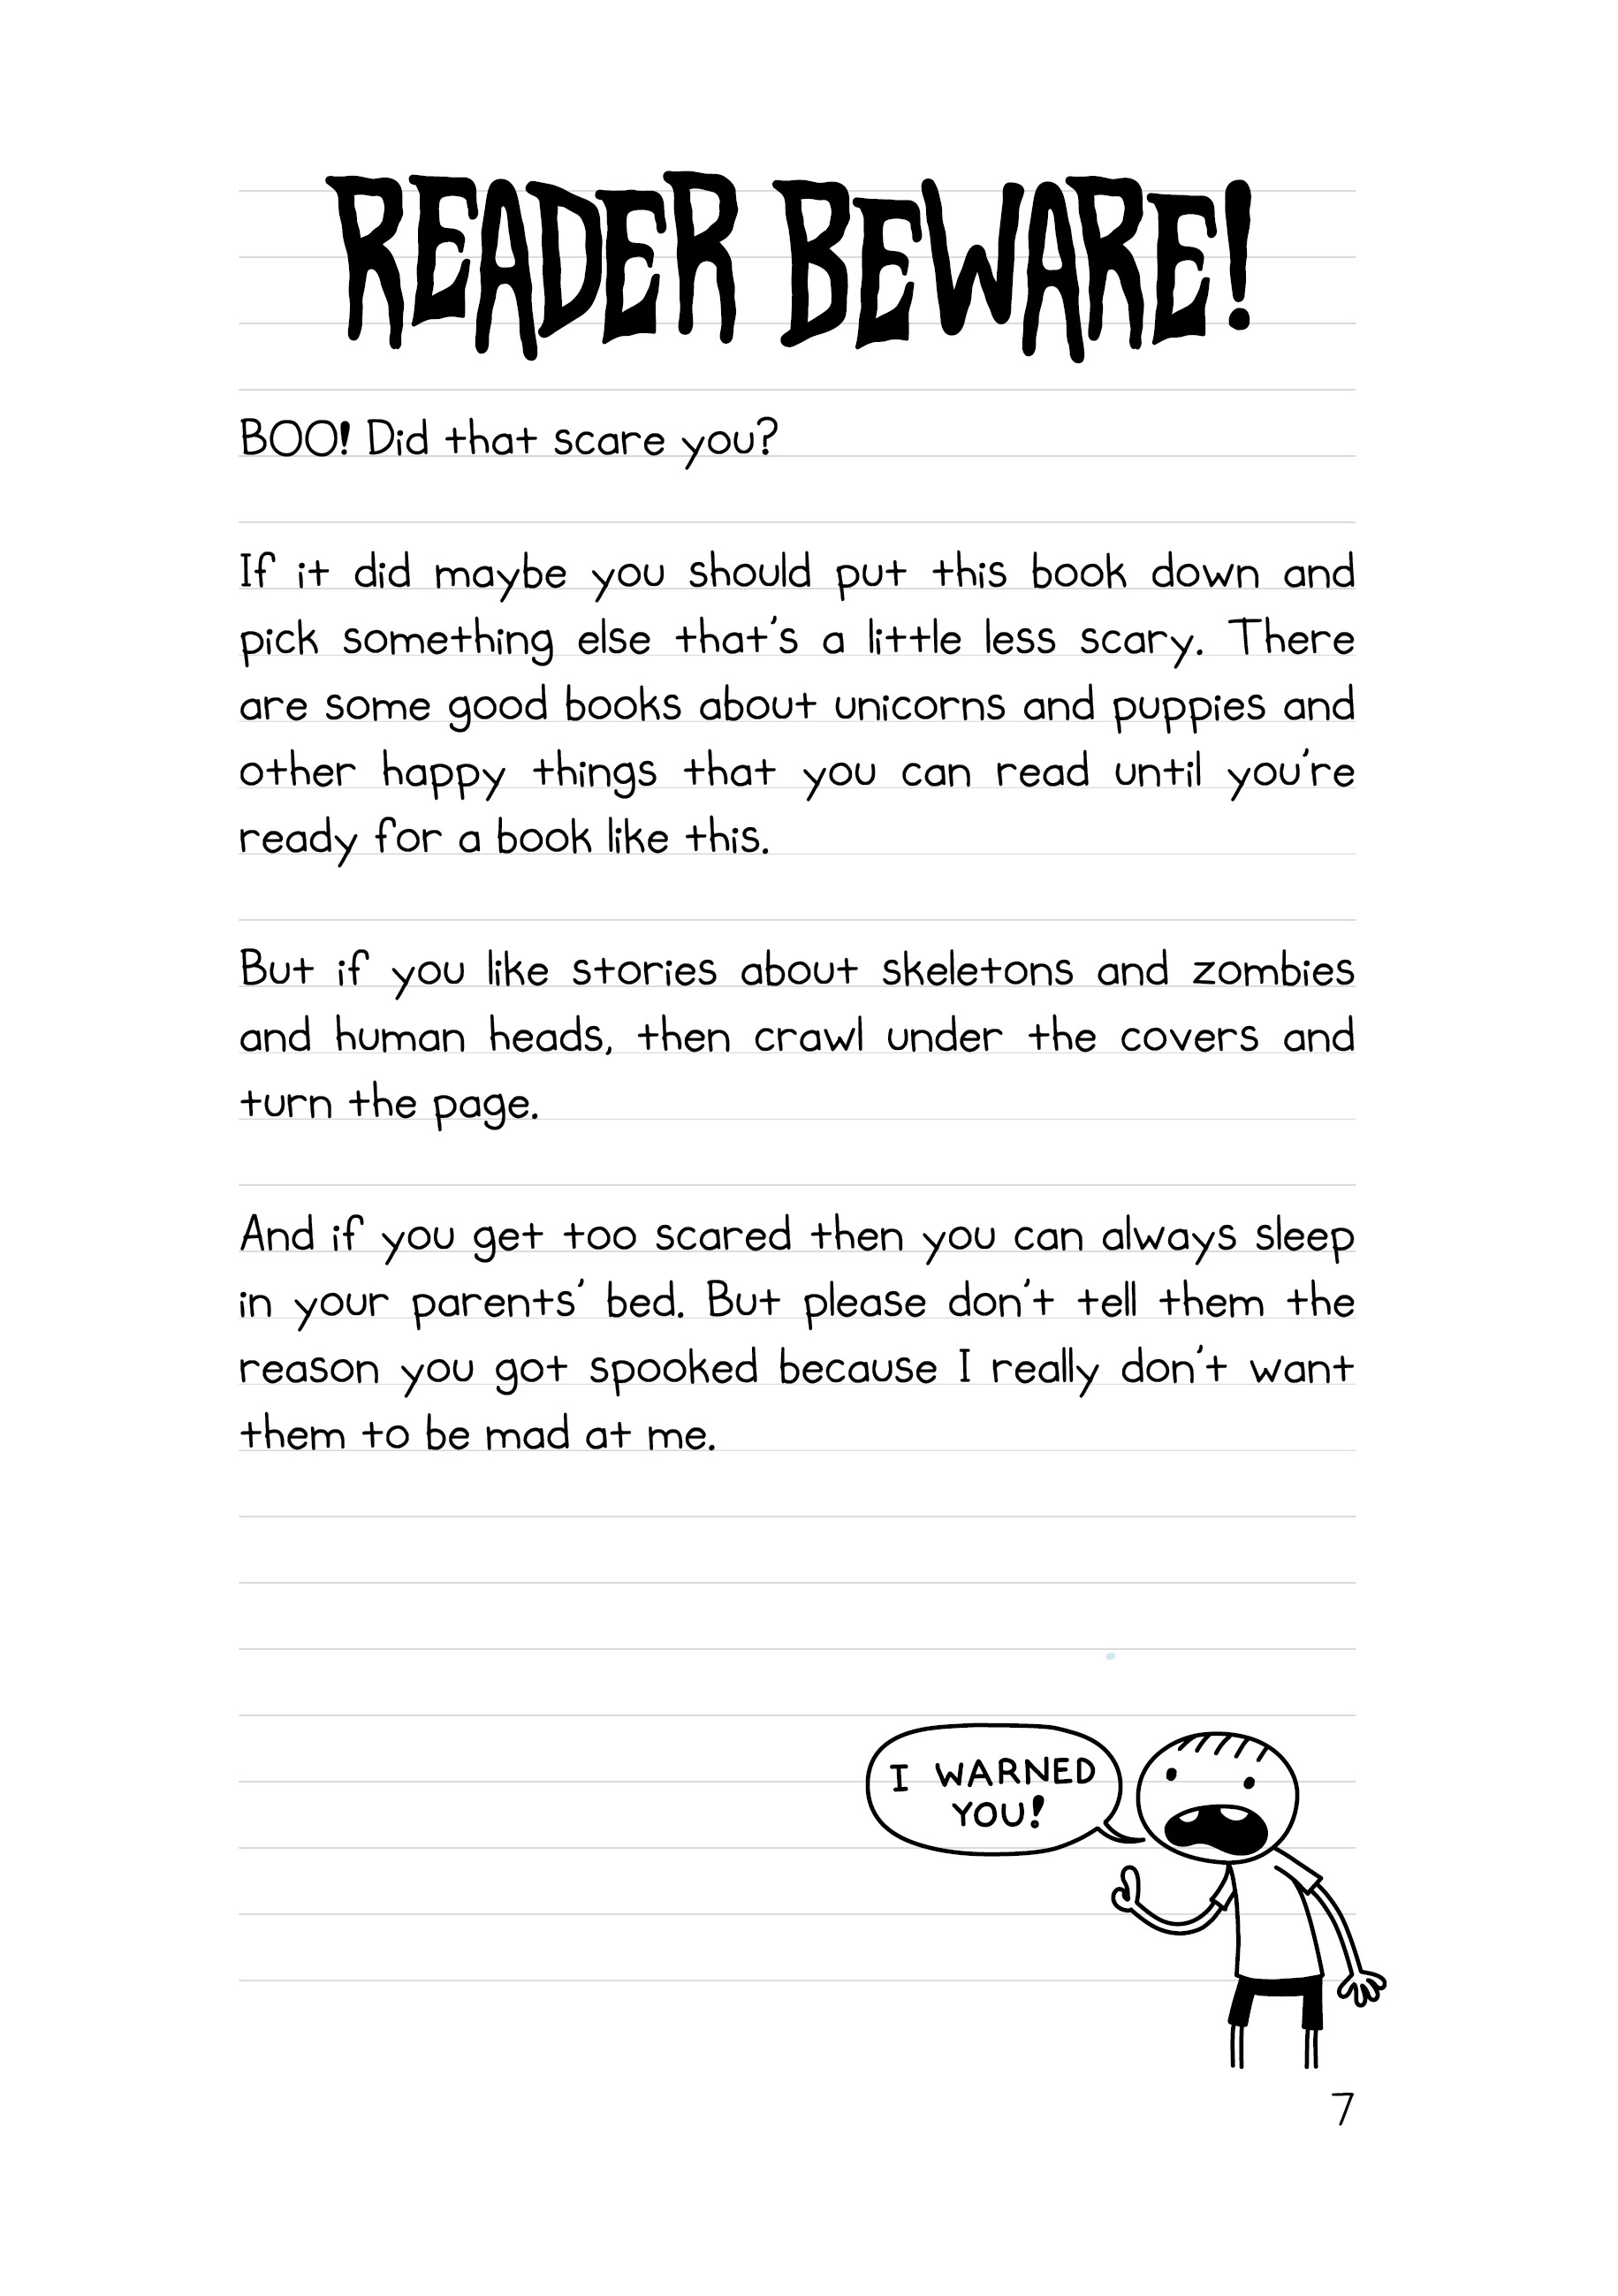 READER BEWARE!
BOO! Did that scare you?
If it did maybe you should put this book down and
pick something else that's a little less scary. There
are some good books about unicorns and puppies and
other happy things that you can read until you're
ready for a book like this.
But if you like stories about skeletons and zombies
and human heads, then crawl under the covers and
turn the page.
And if you get too scared then you can always sleep
in your parents' bed. But please don't tell them the
reason you got spooked because I really don't want
them to be mad at me.
I WARNED
YOU!
7